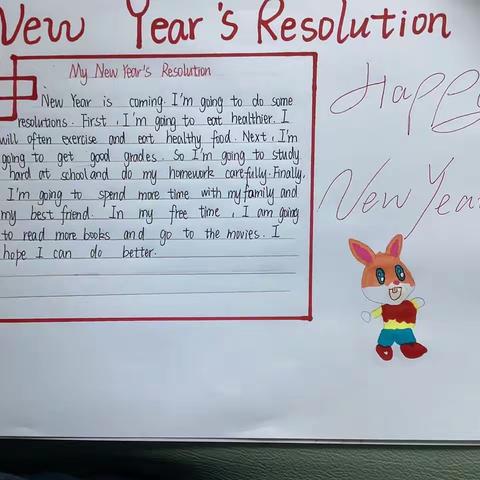 New Year's Resolution
Happy
New Year
My New Year's Resolution
New Year is coming. I'm going to do some
resolutions. First, I'm going to eat healthier. I
will often exercise and eat healthy food. Next, I'm
going to get good grades. So I'm going to study
hard at school and do my homework carefully. Finally,
I'm going to spend more time with my family and
my best friend. In my free time, I am going
to read more books and go to the movies. I
hope I can do better.